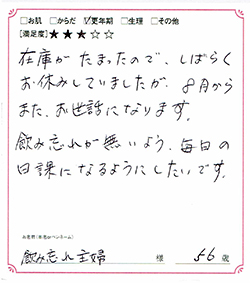 □お肌 □からだ ☑更年期 □生理 □その他
[満足度]★★★☆☆
在庫がたまったので、しばらく
お休みしていましたが、8月から
また、お世話になります。
飲み忘れが無いよう、毎日の
日課になるようにしたいです。
お名前(本名orペンネーム)
飲み忘れ主婦 様 56歳